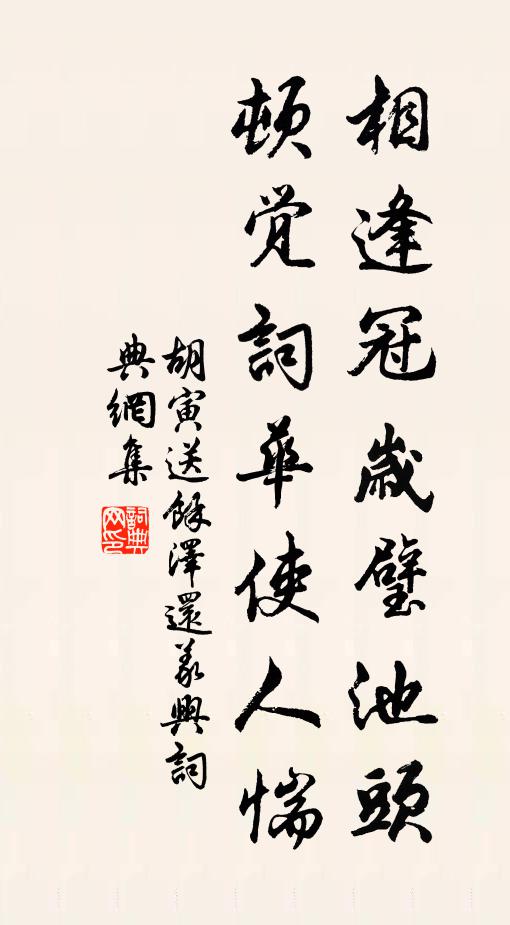 相逢冠歲璧池頭
頓覺詞華使人惴
胡寅送餘澤還義興詞
典網集
詞典网印